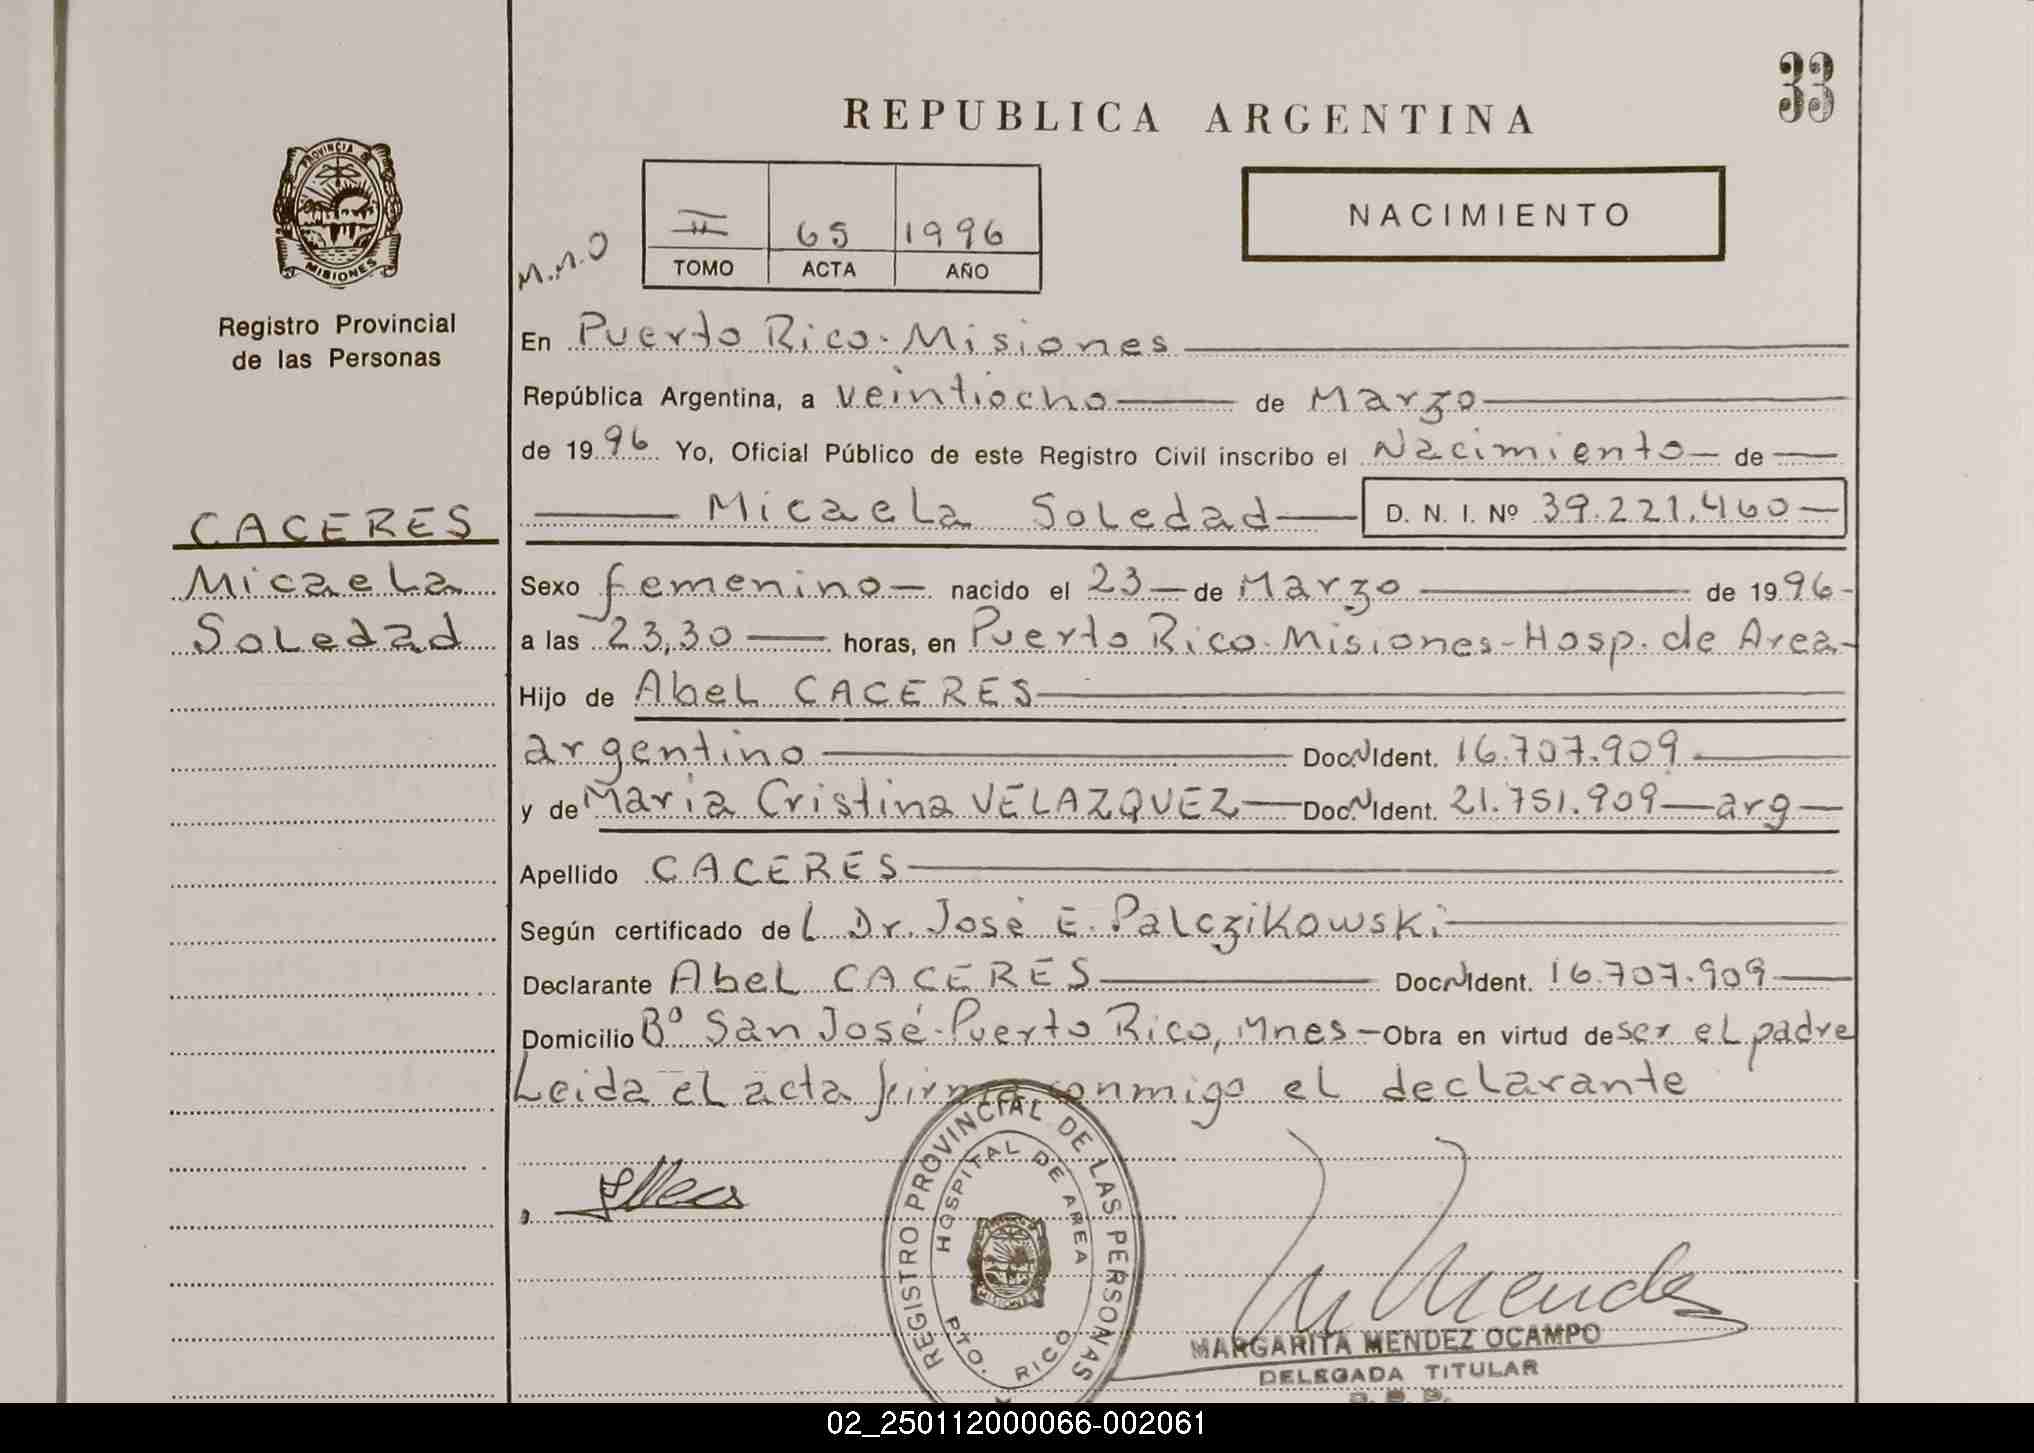 33
REPUBLICA ARGENTINA
PROVINCIA DE
MISIONES
Registro Provincial
de las Personas
NACIMIENTO
M.M.O
II 65 1996
TOMO ACTA AÑO
En Puerto Rico. Misiones
República Argentina, a veintiocho de Marzo
de 1996 Yo, Oficial Público de este Registro Civil inscribo el Nacimiento de
Micaela Soledad D. N. I. Nº 39.221.460
CACERES
Micaela
Soledad
Sexo femenino nacido el 23 de Marzo de 1996
a las 23,30 horas, en Puerto Rico. Misiones - Hosp. de Area
Hijo de Abel CACERES
argentino Doc.N.Ident. 16.707.909
y de Maria Cristina VELAZQUEZ Doc.N.Ident. 21.751.909 arg
Apellido CACERES
Según certificado del Dr. José E. Palczikowski
Declarante Abel CACERES Doc.N.Ident. 16.707.909
Domicilio Bº San José - Puerto Rico, Mnes - Obra en virtud de ser el padre
Leida el acta firma conmigo el declarante
REGISTRO PROVINCIAL DE LAS PERSONAS
HOSPITAL DE AREA
MISIONES
PTO. RICO
M Mendez
MARGARITA MENDEZ OCAMPO
DELEGADA TITULAR
02_250112000066-002061